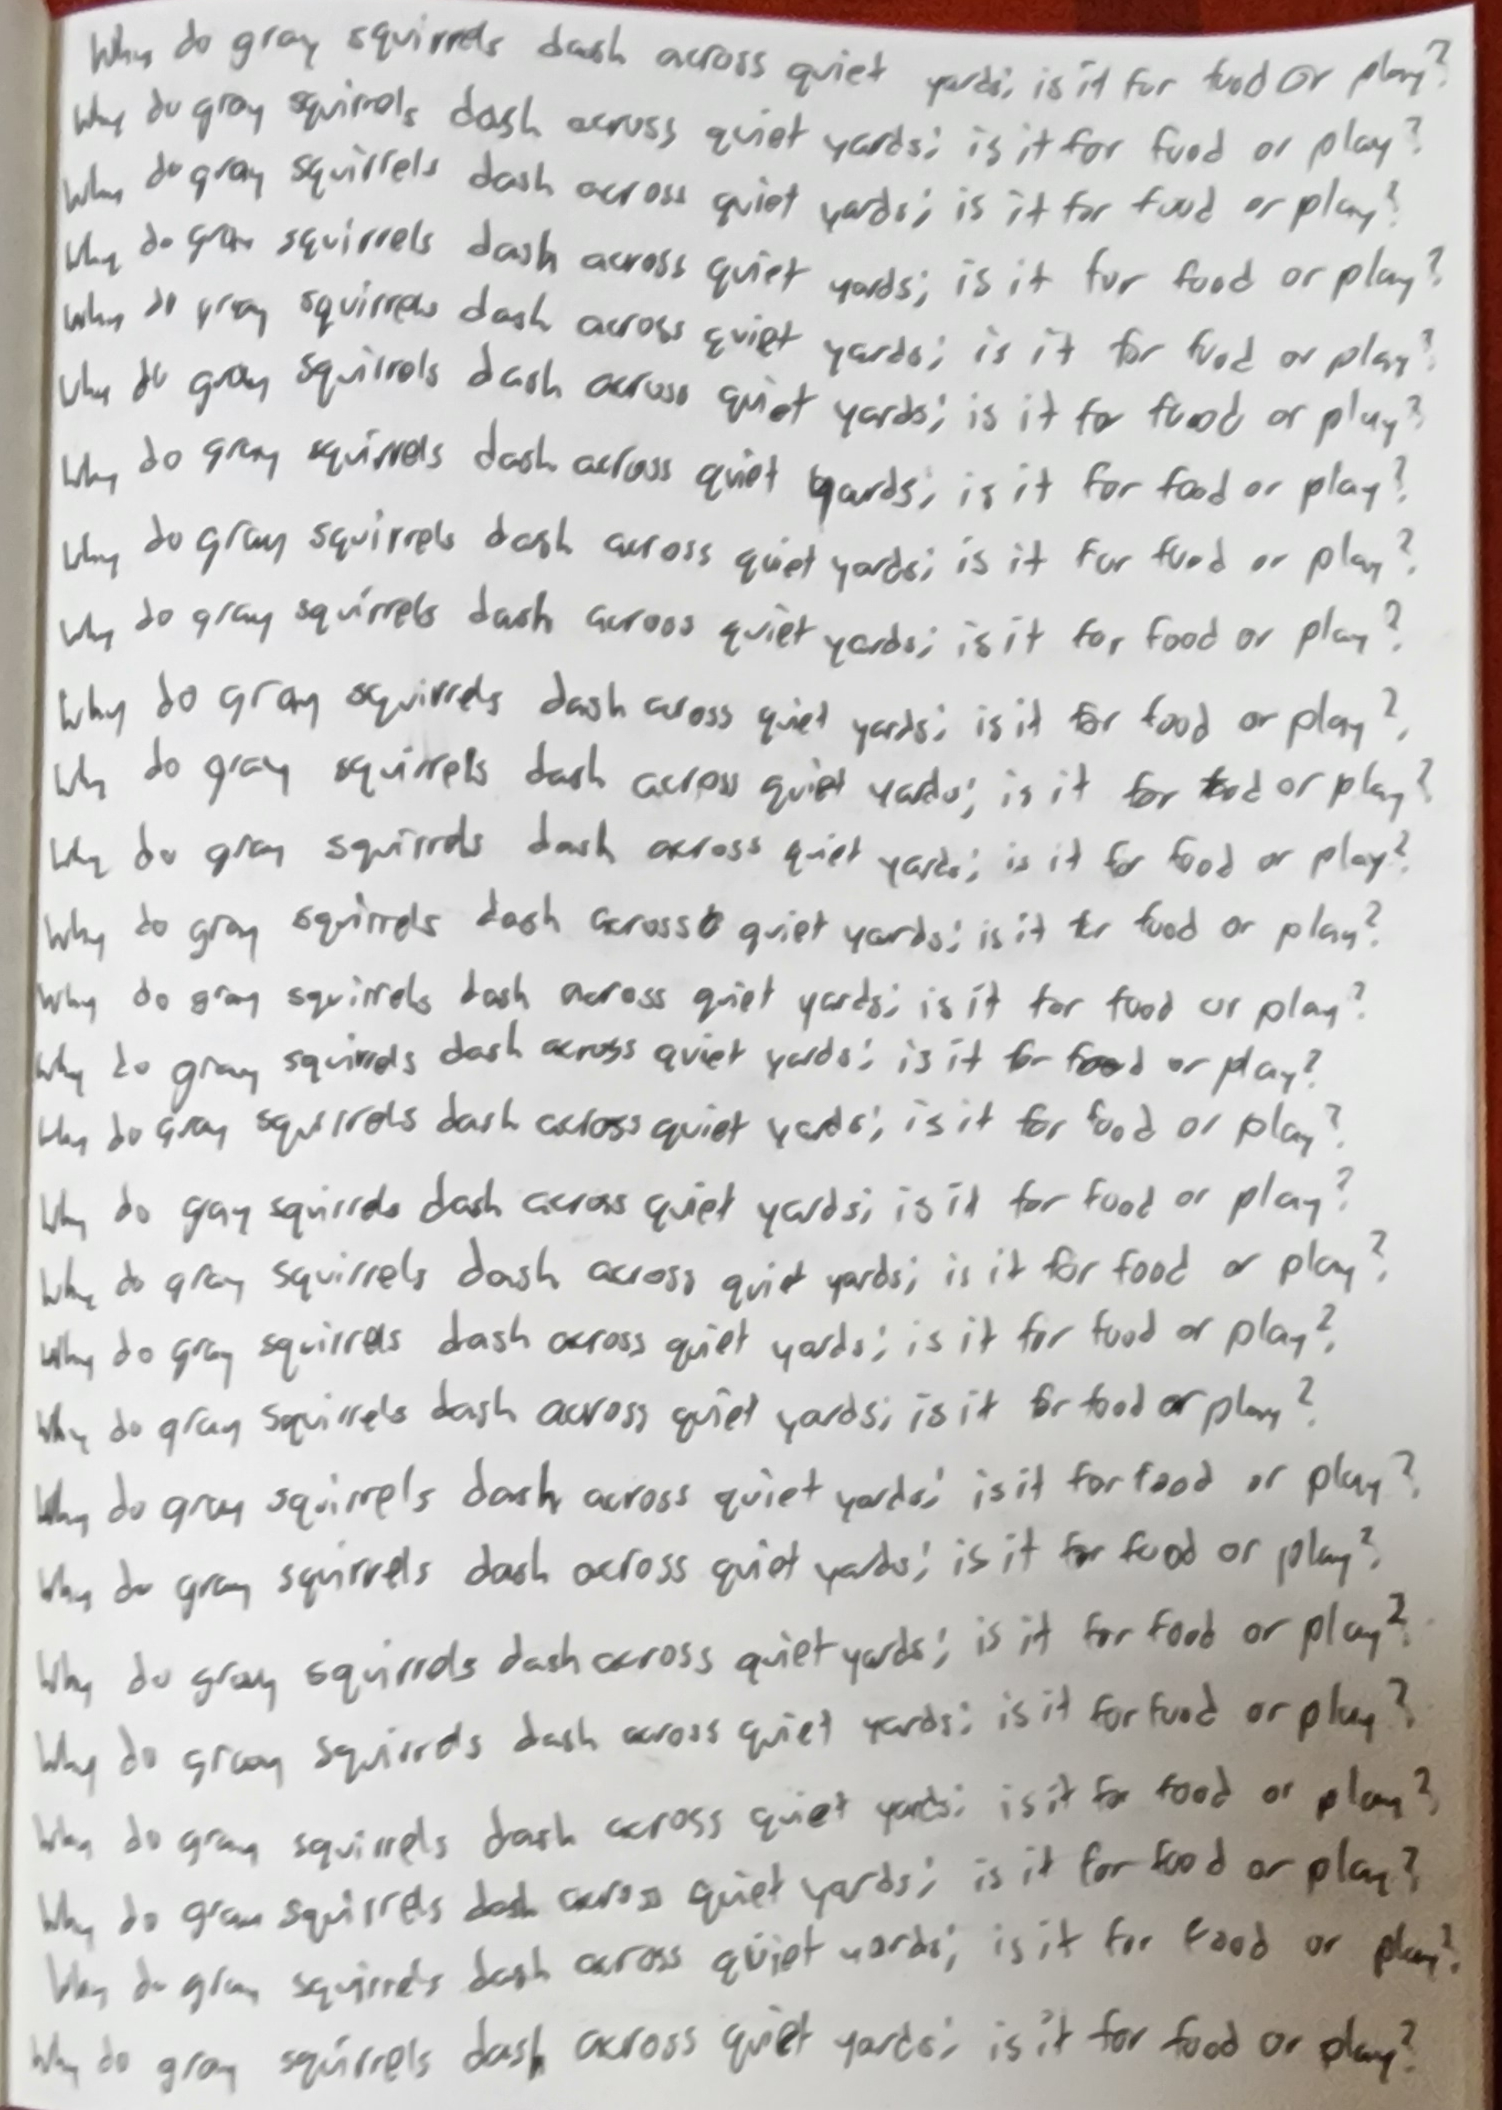 Why do gray squirrels dash across quiet yards; is it for food or play?
Why do gray squirrels dash across quiet yards; is it for food or play?
Why do gray squirrels dash across quiet yards; is it for food or play?
Why do gray squirrels dash across quiet yards; is it for food or play?
Why do gray squirrels dash across quiet yards; is it for food or play?
Why do gray squirrels dash across quiet yards; is it for food or play?
Why do gray squirrels dash across quiet yards; is it for food or play?
Why do gray squirrels dash across quiet yards; is it for food or play?
Why do gray squirrels dash across quiet yards; is it for food or play?
Why do gray squirrels dash across quiet yards; is it for food or play?
Why do gray squirrels dash across quiet yards; is it for food or play?
Why do gray squirrels dash across quiet yards; is it for food or play?
Why do gray squirrels dash across quiet yards; is it for food or play?
Why do gray squirrels dash across quiet yards; is it for food or play?
Why do gray squirrels dash across quiet yards; is it for food or play?
Why do gray squirrels dash across quiet yards; is it for food or play?
Why do gray squirrels dash across quiet yards; is it for food or play?
Why do gray squirrels dash across quiet yards; is it for food or play?
Why do gray squirrels dash across quiet yards; is it for food or play?
Why do gray squirrels dash across quiet yards; is it for food or play?
Why do gray squirrels dash across quiet yards; is it for food or play?
Why do gray squirrels dash across quiet yards; is it for food or play?
Why do gray squirrels dash across quiet yards; is it for food or play?
Why do gray squirrels dash across quiet yards; is it for food or play?
Why do gray squirrels dash across quiet yards; is it for food or play?
Why do gray squirrels dash across quiet yards; is it for food or play?
Why do gray squirrels dash across quiet yards; is it for food or play?
Why do gray squirrels dash across quiet yards; is it for food or play?